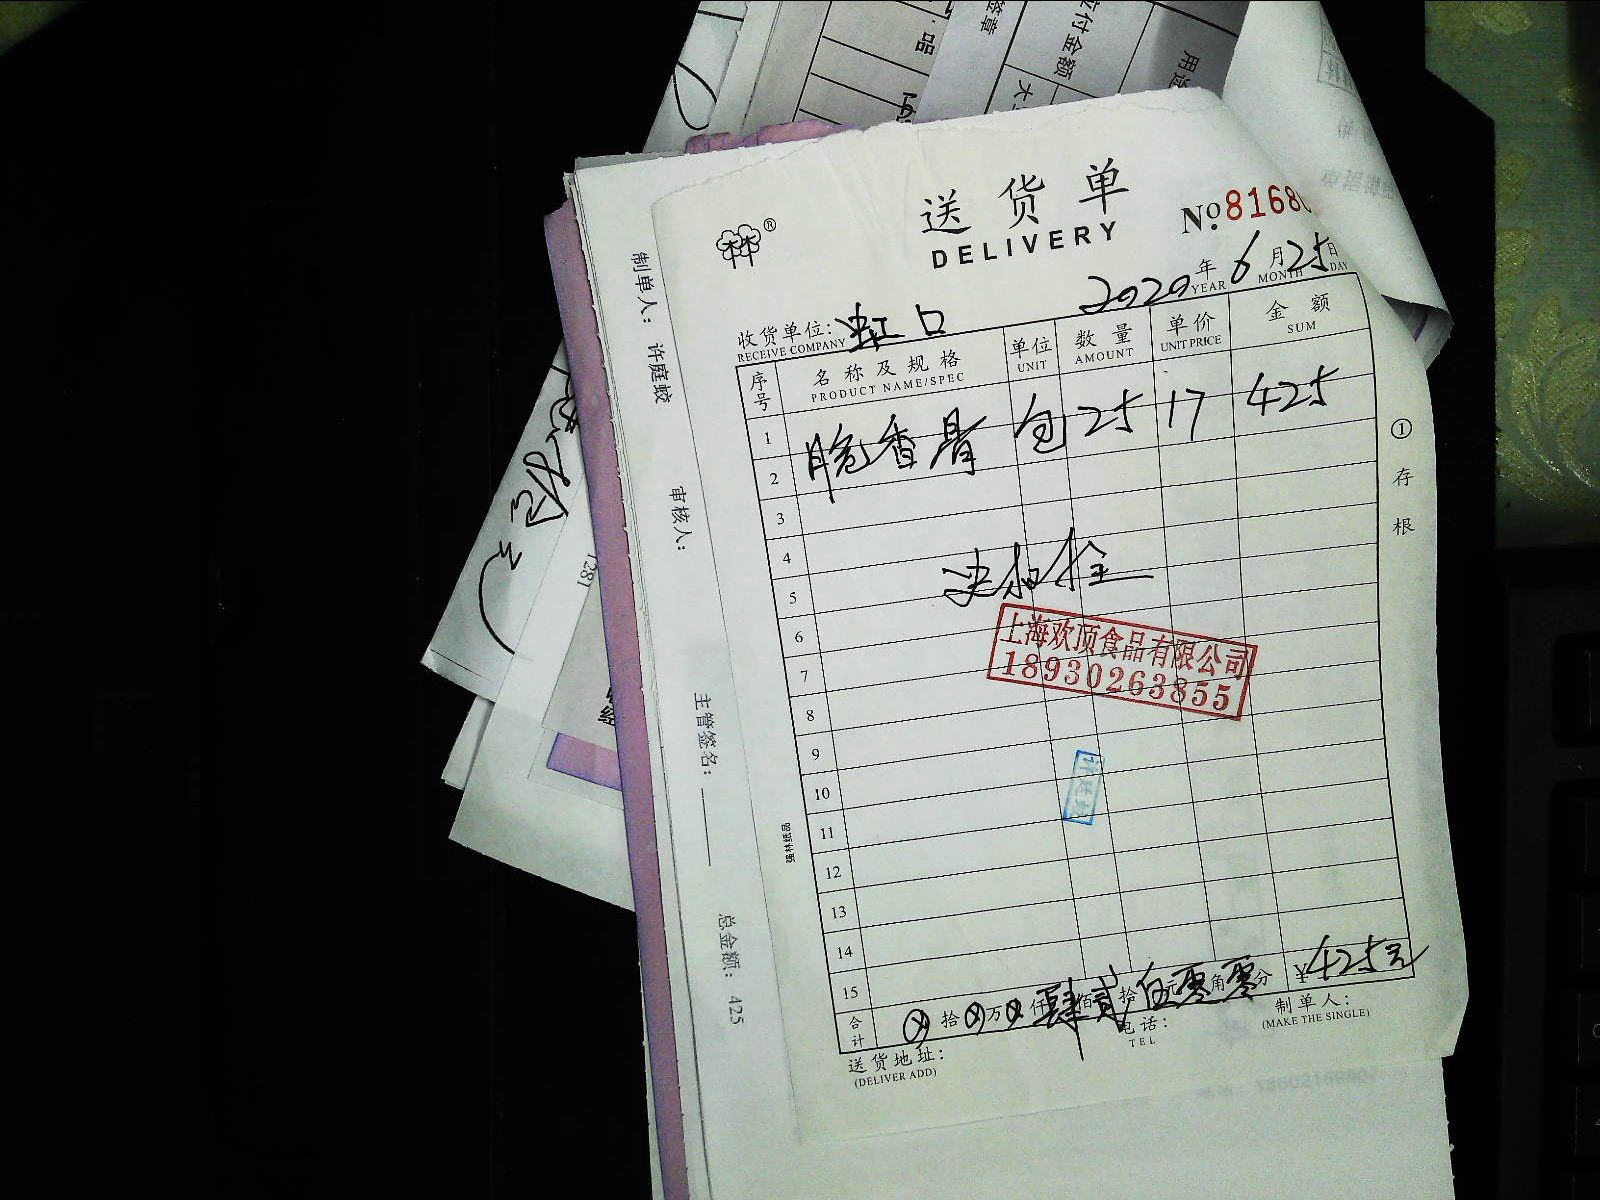 品
签章
应付金额
大
用途
送货单
DELIVERY
No. 8168
2020年6月25日
YEAR MONTH DAY
收货单位: 虹口
RECEIVE COMPANY
序号 名称及规格 单位 数量 单价 金额
PRODUCT NAME/SPEC UNIT AMOUNT UNIT PRICE SUM
1 脆香骨 包 25 17 425
2
3
4
5
6
上海欢顶食品有限公司
18930263855
7
8
9
10
11
12
13
14
15
合计 拾 万 仟 肆佰 贰拾 伍元 零角 零分 ¥425元
送货地址:
(DELIVER ADD)
电话:
TEL
制单人:
(MAKE THE SINGLE)
①存根
强林纸品
制单人: 许庭蛟
审核人:
主管签名:
总金额: 425
1281